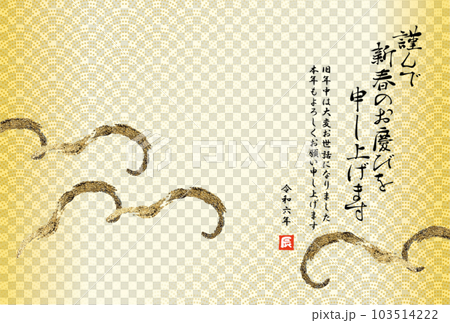 謹んで
新春のお慶びを
申し上げます
旧年中は大変お世話になりました
本年もよろしくお願い申し上げます
令和六年
辰
103514222